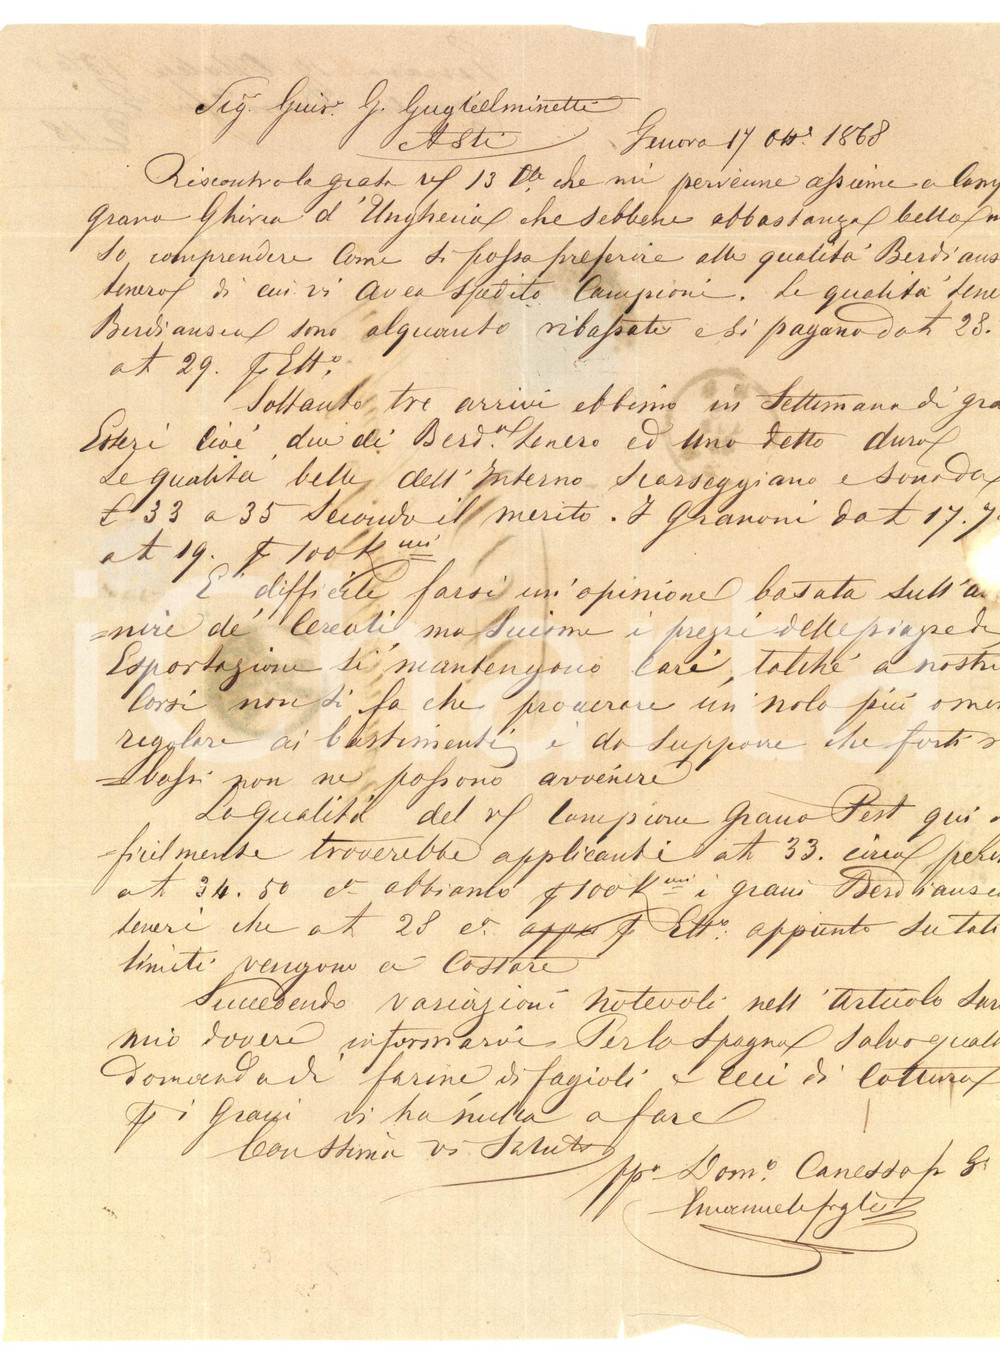 Sig. Guis. G. Guglielminetti
Asti
Genova 17 Ott. 1868
Riscontro la grata 13 che mi pervenne assieme a Camp
grano Ghirca d'Ungheria che sebbene abbastanza bella
so comprendere come si possa preferire alle qualità Berdians
tenero di cui vi avea spedito Campioni. Le qualità tene
Berdiansca sono alquanto ribassate e si pagano da £ 28.
a £ 29. Ett.o
Soltanto tre arrivi ebbimo in Settimana di gra
Esteri cioè due di Berd.a tenero ed uno detto duro
Le qualità belle dell'Interno scarseggiano e sono da
£ 33 a 35 secondo il merito. I Granoni da £ 17.
a £ 19. 100 K
E' difficile farsi un'opinione basata sull'a
=nire de' Cereali ma siccome i prezzi delle piazze di
Esportazione si mantengono cari, talchè a nostri
Corsi non si fa che procurare un nolo più o men
regolare ai bastimenti, è da supporre che forti r
=bassi non ne possono avvenire
La qualità del Campione Grano Pest qui
=ficilmente troverebbe applicanti a £ 33. circa perchè
a £ 34.50 abbiamo 100 K i grani Berdiansca
teneri che a £ 28 Ett.o appunto su tali
limiti vengono a Costare
Succedendo variazioni notevoli nell'Articolo sar
mio dovere informarvi. Per la Spagna salvo qual
domanda di farine di fagioli e ceci di Cottura
i Grani vi ha nulla a fare
vi Saluto
pp.o Dom.o Canessa